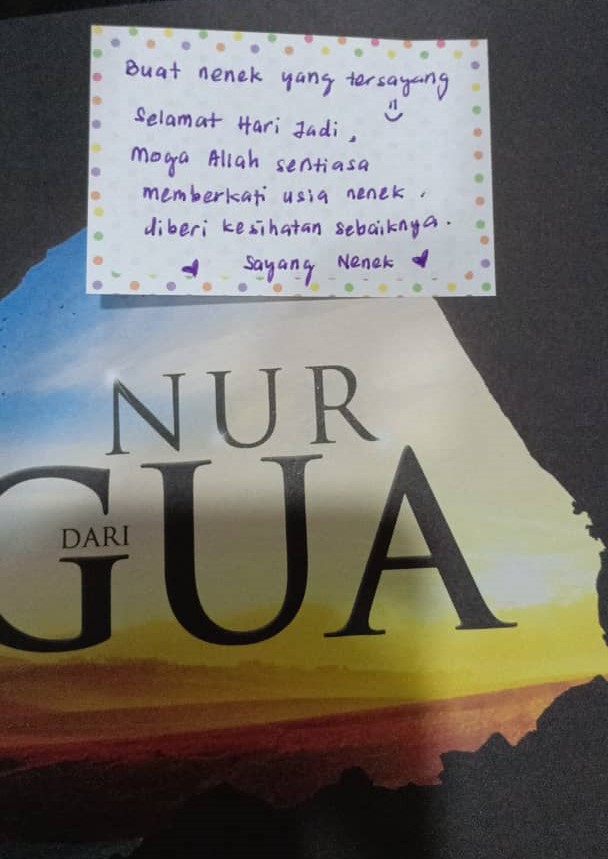 Buat nenek yang tersayang
Selamat Hari Jadi,
Moga Allah sentiasa
memberkati usia nenek,
diberi kesihatan sebaiknya.
Sayang Nenek
NUR
DARI
GUA